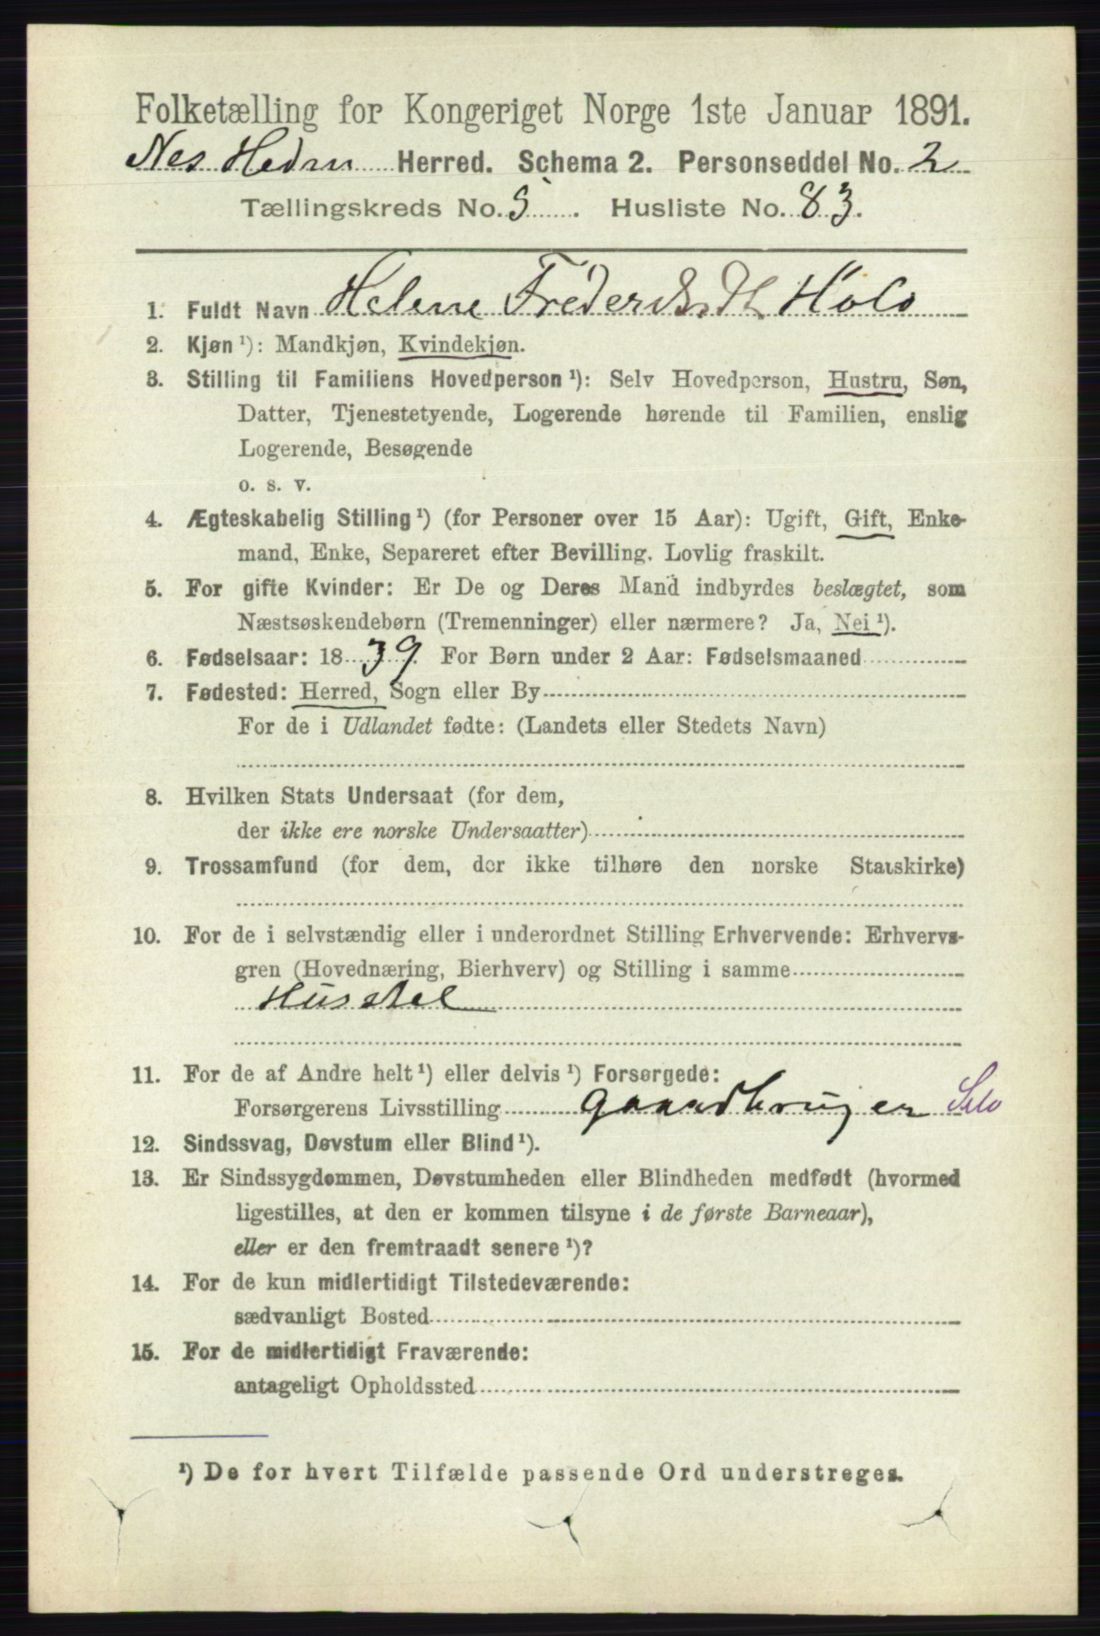 Folketælling for Kongeriget Norge 1ste Januar 1891.
Nes Hedm Herred. Schema 2. Personseddel No. 2
Tællingskreds No. 5. Husliste No. 83.
1. Fuldt Navn Helene Holo
2. Kjøn ¹): Mandkjøn, Kvindekjøn.
3. Stilling til Familiens Hovedperson ¹): Selv Hovedperson, Hustru, Søn,
Datter, Tjenestetyende, Logerende hørende til Familien, enslig
Logerende, Besøgende
o. s. v.
4. Ægteskabelig Stilling ¹) (for Personer over 15 Aar): Ugift, Gift, Enke-
mand, Enke, Separeret efter Bevilling. Lovlig fraskilt.
5. For gifte Kvinder: Er De og Deres Mand indbyrdes beslægtet, som
Næstsøskendebørn (Tremenninger) eller nærmere? Ja, Nei ¹).
6. Fødselsaar: 1839. For Børn under 2 Aar: Fødselsmaaned
7. Fødested: Herred, Sogn eller By
For de i Udlandet fødte: (Landets eller Stedets Navn)
8. Hvilken Stats Undersaat (for dem,
der ikke ere norske Undersaatter)
9. Trossamfund (for dem, der ikke tilhøre den norske Statskirke)
10. For de i selvstændig eller i underordnet Stilling Erhvervende: Erhvervs-
gren (Hovednæring, Bierhverv) og Stilling i samme
Husstel
11. For de af Andre helt ¹) eller delvis ¹) Forsørgede:
Forsørgerens Livsstilling gaardbruger Selv
12. Sindssvag, Døvstum eller Blind ¹).
13. Er Sindssygdommen, Døvstumheden eller Blindheden medfødt (hvormed
ligestilles, at den er kommen tilsyne i de første Barneaar),
eller er den fremtraadt senere ¹)?
14. For de kun midlertidigt Tilstedeværende:
sædvanligt Bosted
15. For de midlertidigt Fraværende:
antageligt Opholdssted
¹) De for hvert Tilfælde passende Ord understreges.